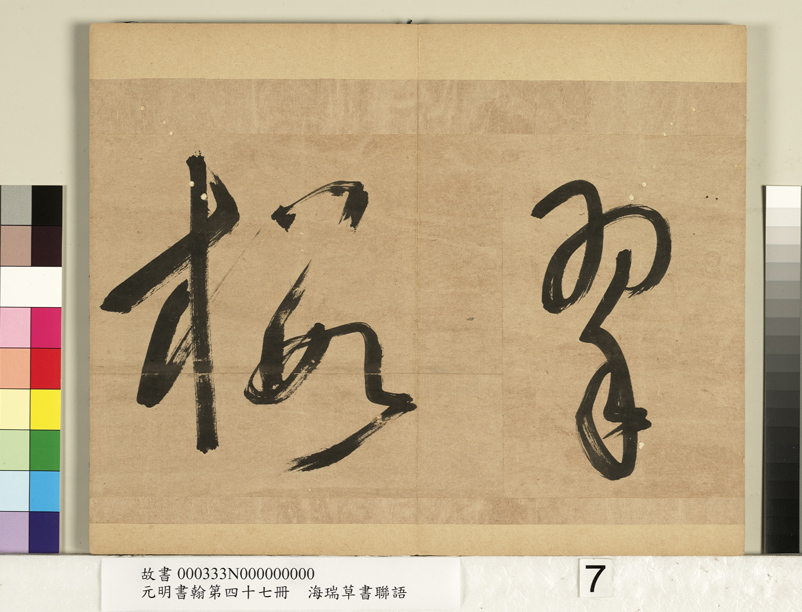 翠
故書 000333N000000000
元明書翰第四十七冊　海瑞草書聯語
7